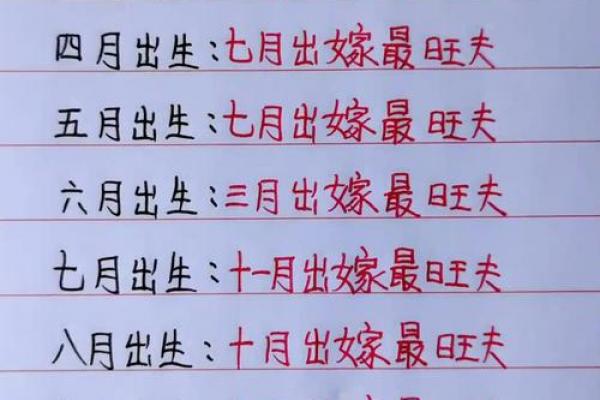 四月出生:七月出嫁最旺夫
五月出生:七月出嫁最旺夫
六月出生:三月出嫁最旺夫
七月出生:十一月出嫁最旺夫
八月出生:十月出嫁最旺夫